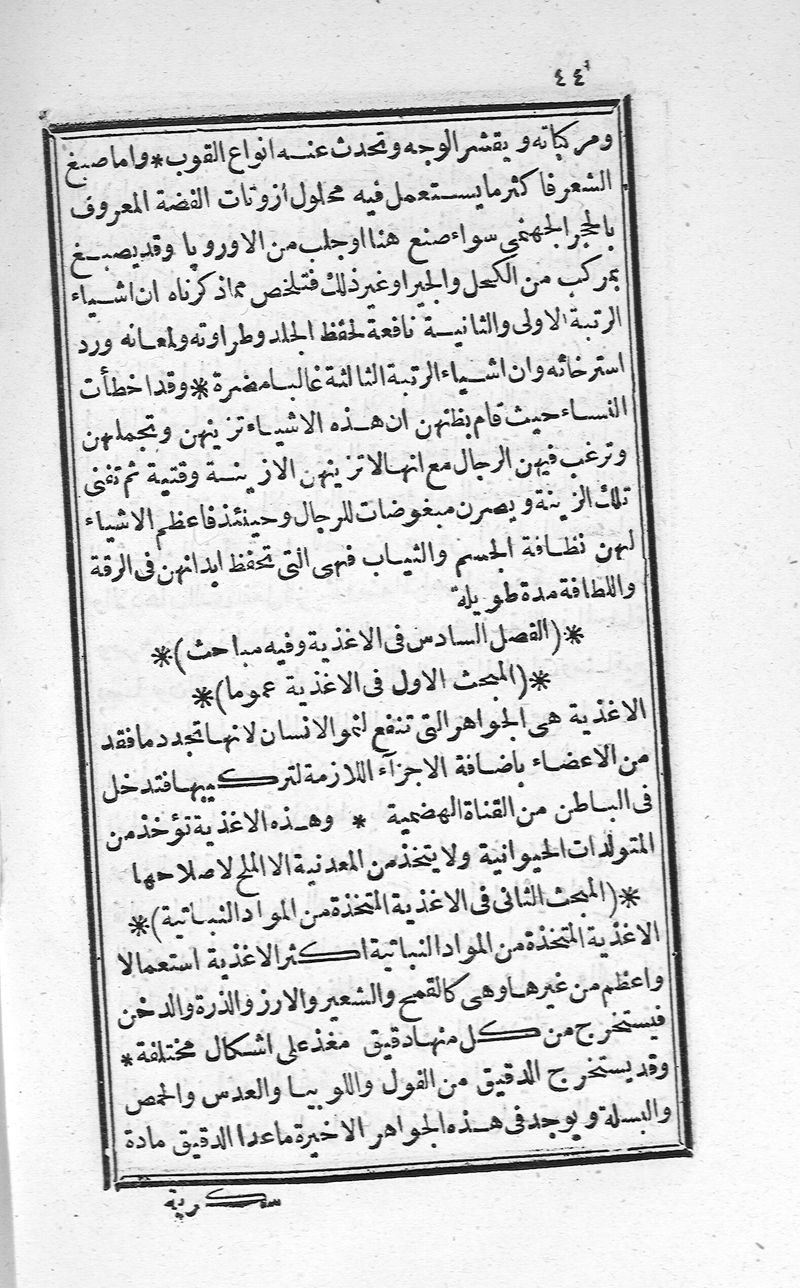 ٤٤
ومركباته ويقشر الوجه وتحدث عنه انواع القوب * واما صبغ
الشعر فاكثر ما يستعمل فيه محلول ازوتات الفضة المعروف
بالحجر الجهنمى سواء صنع هنا او جلب من الاوروپا وقد يصبغ
بمركب من الكحل والجير او غير ذلك فتلخص مما ذكرناه ان اشياء
الرتبة الاولى والثانية نافعة لحفظ الجلد وطراوته ولمعانه ورد
استرخائه وان اشياء الرتبة الثالثة غالبا مضرة * وقد اخطأت
النساء حيث قام بظنهن ان هذه الاشياء تزينهن وتجملهن
وترغب فيهن الرجال مع انها لا تزينهن الا زينة وقتية ثم تفنى
تلك الزينة ويصرن مبغوضات للرجال وحينئذ فاعظم الاشياء
لهن نظافة الجسم والثياب فهى التى تحفظ ابدانهن فى الرقة
واللطافة مدة طويلة
* (الفصل السادس فى الاغذية وفيه مباحث) *
* (المبحث الاول فى الاغذية عموما) *
الاغذية هى الجواهر التى تنفع لنمو الانسان لانها تجدد ما فقد
من الاعضاء باضافة الاجزآء اللازمة لتركيبها فتدخل
فى الباطن من القناة الهضمية * وهذه الاغذية تؤخذ من
المتولدات الحيوانية ولا يتخذ من المعدنية الا الملح لاصلاحها
* (المبحث الثانى فى الاغذية المتخذة من المواد النباتية) *
الاغذية المتخذة من المواد النباتية اكثر الاغذية استعمالا
واعظم من غيرها وهى كالقمح والشعير والارز والذرة والدخن
فيستخرج من كل منها دقيق مغذ على اشكال مختلفة *
وقد يستخرج الدقيق من الفول واللوبيا والعدس والحمص
والبسلة ويوجد فى هذه الجواهر الاخيرة ماعدا الدقيق مادة
سكرية